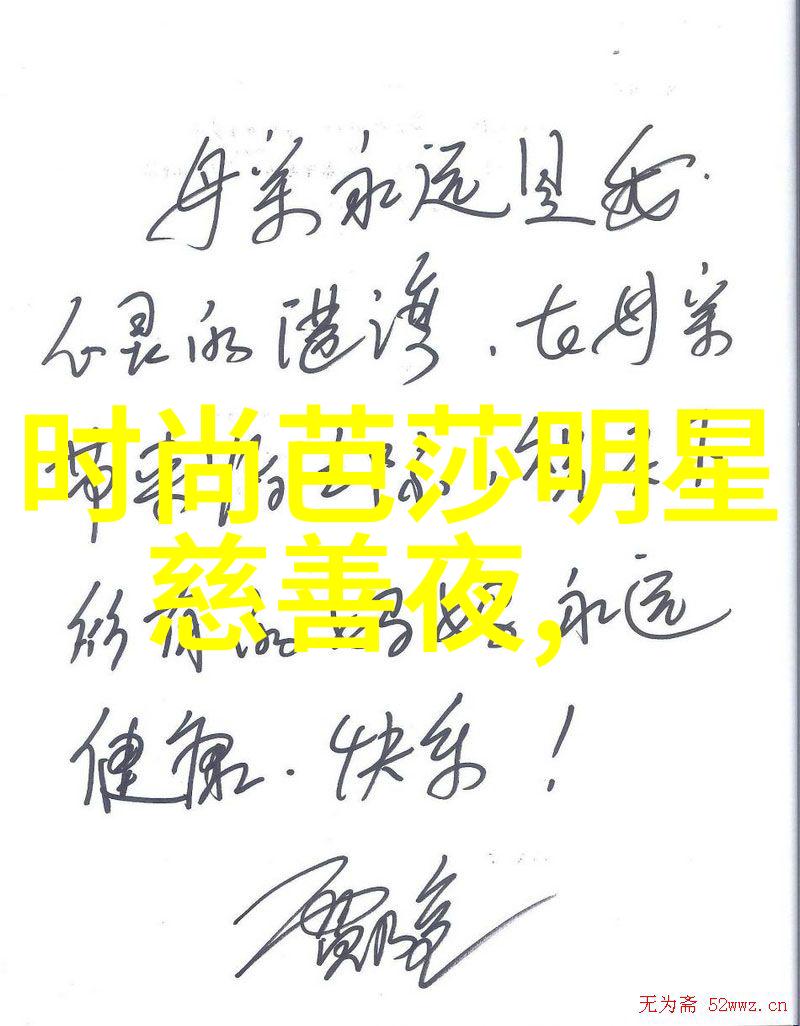 母亲永远是我
心灵的港湾，在母亲
时尚芭莎明星
慈善夜,
所有的妈妈永远
健康、快乐！
无为斋 52wwz.cn